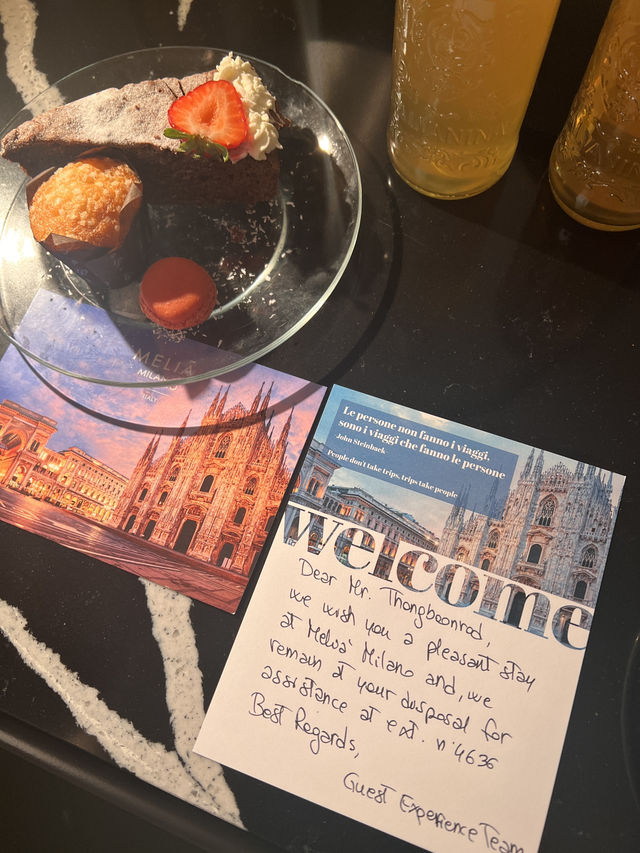 MELIÃ
MILANO
ITALY
Le persone non fanno i viaggi,
sono i viaggi che fanno le persone
John Steinbaek
People don't take trips, trips take people
welcome
Dear Mr. Thongboonrod,
we wish you a pleasant stay
at Melià Milano and, we
remain at your disposal for
assistance at ext. n°4636
Best Regards,
Guest Experience Team